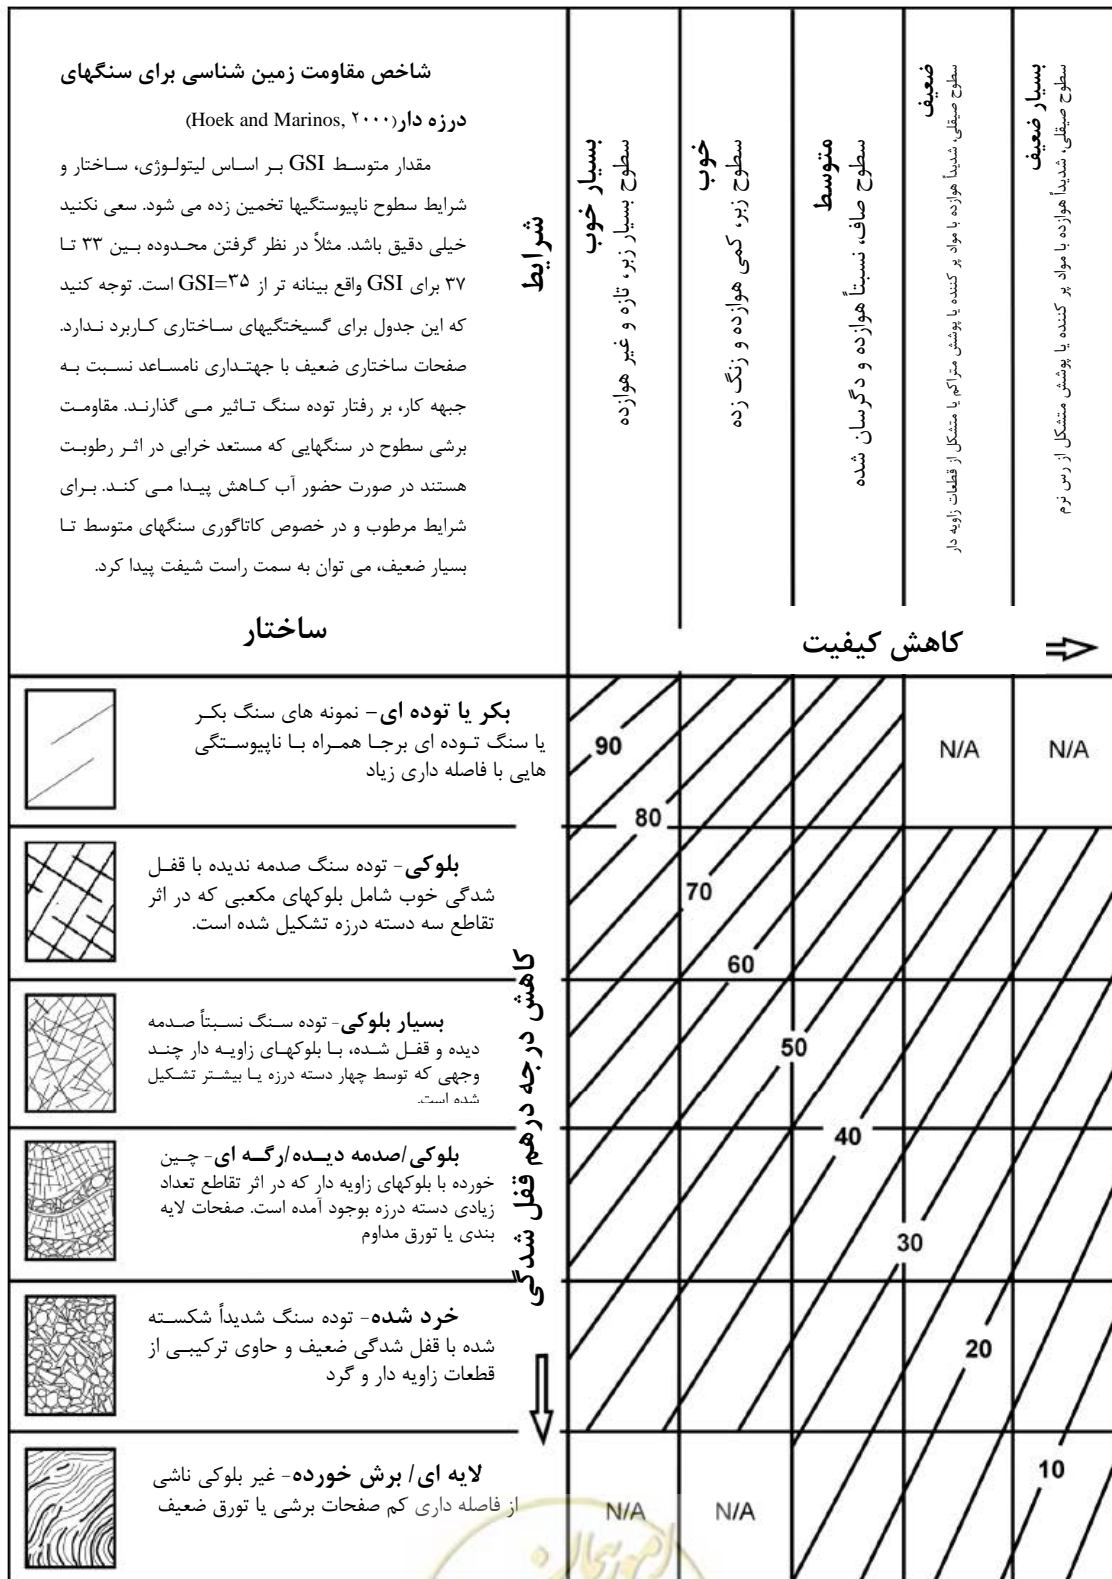 شاخص مقاومت زمین شناسی برای سنگهای
درزه دار(Hoek and Marinos, ۲۰۰۰)
مقدار متوسط GSI بر اساس لیتولوژی، ساختار و
شرایط سطوح ناپیوستگیها تخمین زده می شود. سعی نکنید
خیلی دقیق باشد. مثلاً در نظر گرفتن محدوده بین ۳۳ تا
۳۷ برای GSI واقع بینانه تر از GSI=۳۵ است. توجه کنید
که این جدول برای گسیختگیهای ساختاری کاربرد ندارد.
صفحات ساختاری ضعیف با جهتداری نامساعد نسبت به
جبهه کار، بر رفتار توده سنگ تاثیر می گذارند. مقاومت
برشی سطوح در سنگهایی که مستعد خرابی در اثر رطوبت
هستند در صورت حضور آب کاهش پیدا می کند. برای
شرایط مرطوب و در خصوص کاتاگوری سنگهای متوسط تا
بسیار ضعیف، می توان به سمت راست شیفت پیدا کرد.
شرایط
بسیار خوب
سطوح بسیار زبر، تازه و غیر هوازده
خوب
سطوح زبر، کمی هوازده و زنگ زده
متوسط
سطوح صاف، نسبتاً هوازده و دگرسان شده
ضعیف
سطوح صیقلی، شدیداً هوازده با مواد پر کننده یا پوشش متراکم یا متشکل از قطعات زاویه دار
بسیار ضعیف
سطوح صیقلی، شدیداً هوازده با مواد پر کننده یا پوشش متشکل از رس نرم
ساختار
کاهش کیفیت
بکر یا توده ای- نمونه های سنگ بکر
یا سنگ توده ای برجا همراه با ناپیوستگی
هایی با فاصله داری زیاد
90
80
N/A
N/A
بلوکی- توده سنگ صدمه ندیده با قفل
شدگی خوب شامل بلوکهای مکعبی که در اثر
تقاطع سه دسته درزه تشکیل شده است.
70
60
کاهش درجه درهم قفل شدگی
بسیار بلوکی- توده سنگ نسبتاً صدمه
دیده و قفل شده، با بلوکهای زاویه دار چند
وجهی که توسط چهار دسته درزه یا بیشتر تشکیل
شده است.
50
40
بلوکی/صدمه دیده/رگه ای- چین
خورده با بلوکهای زاویه دار که در اثر تقاطع تعداد
زیادی دسته درزه بوجود آمده است. صفحات لایه
بندی یا تورق مداوم
30
خرد شده- توده سنگ شدیداً شکسته
شده با قفل شدگی ضعیف و حاوی ترکیبی از
قطعات زاویه دار و گرد
20
لایه ای/ برش خورده- غیر بلوکی ناشی
از فاصله داری کم صفحات برشی یا تورق ضعیف
N/A
N/A
10